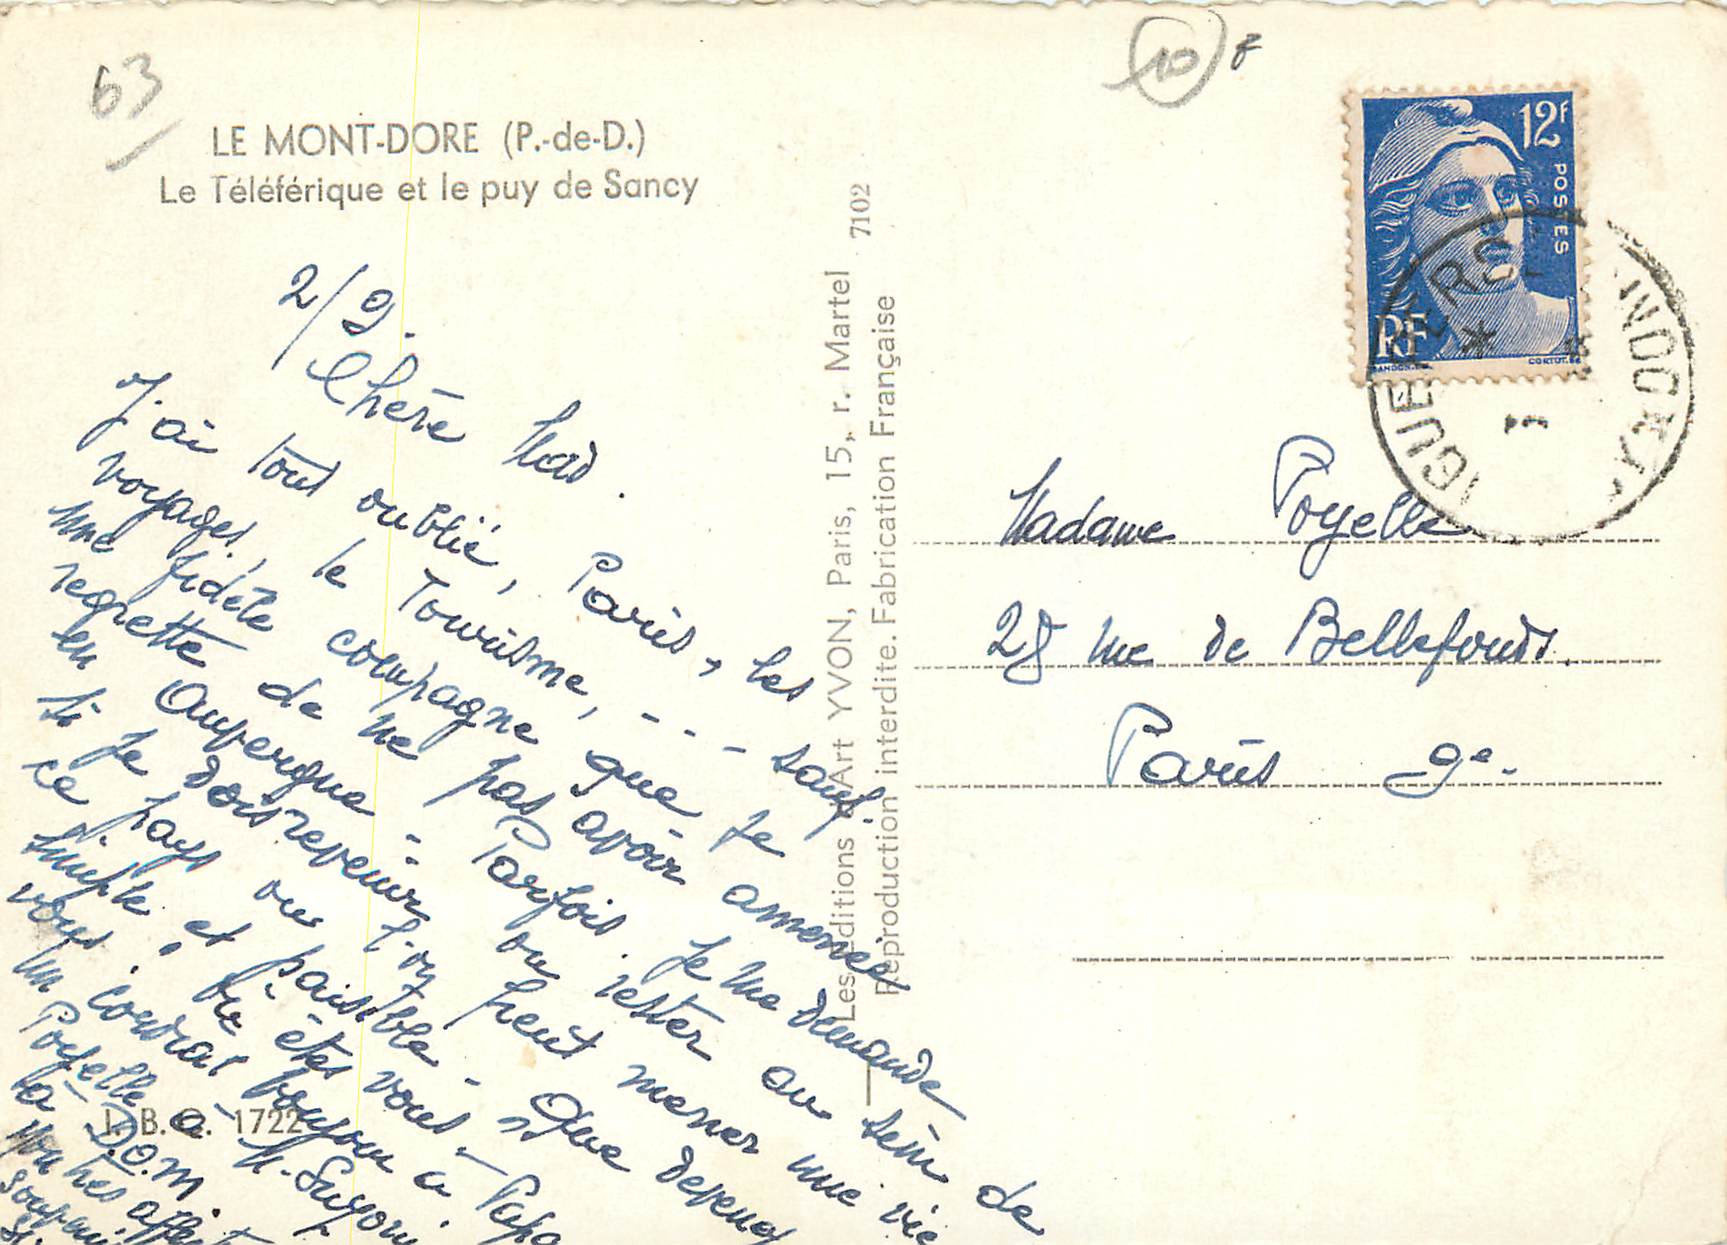 63
10
LE MONT-DORE (P.-de-D.)
Le Téléférique et le puy de Sancy
2/9.
Chère Mad.
J'ai tout oublié, Paris, les
voyages, le Tourisme, - - - sauf
une fidèle compagne que je
regrette de ne pas avoir amenée
en Auvergne - Parfois je me demande
si je dois revenir ou rester au sein de
ce pays ou l'on peut mener une vie
simple et paisible - Que devenez
vous, où êtes vous -
Un cordial bonjour à Papa
Poyelle à M.
à D.O.M.
mon très affectueux
Les Editions d'Art YVON, Paris, 15, r. Martel 7102
Reproduction interdite. Fabrication Française
I. B. C. 1722
12F
POSTES
RF
Madame Poyelle
28 rue de Bellefonds.
Paris 9e.